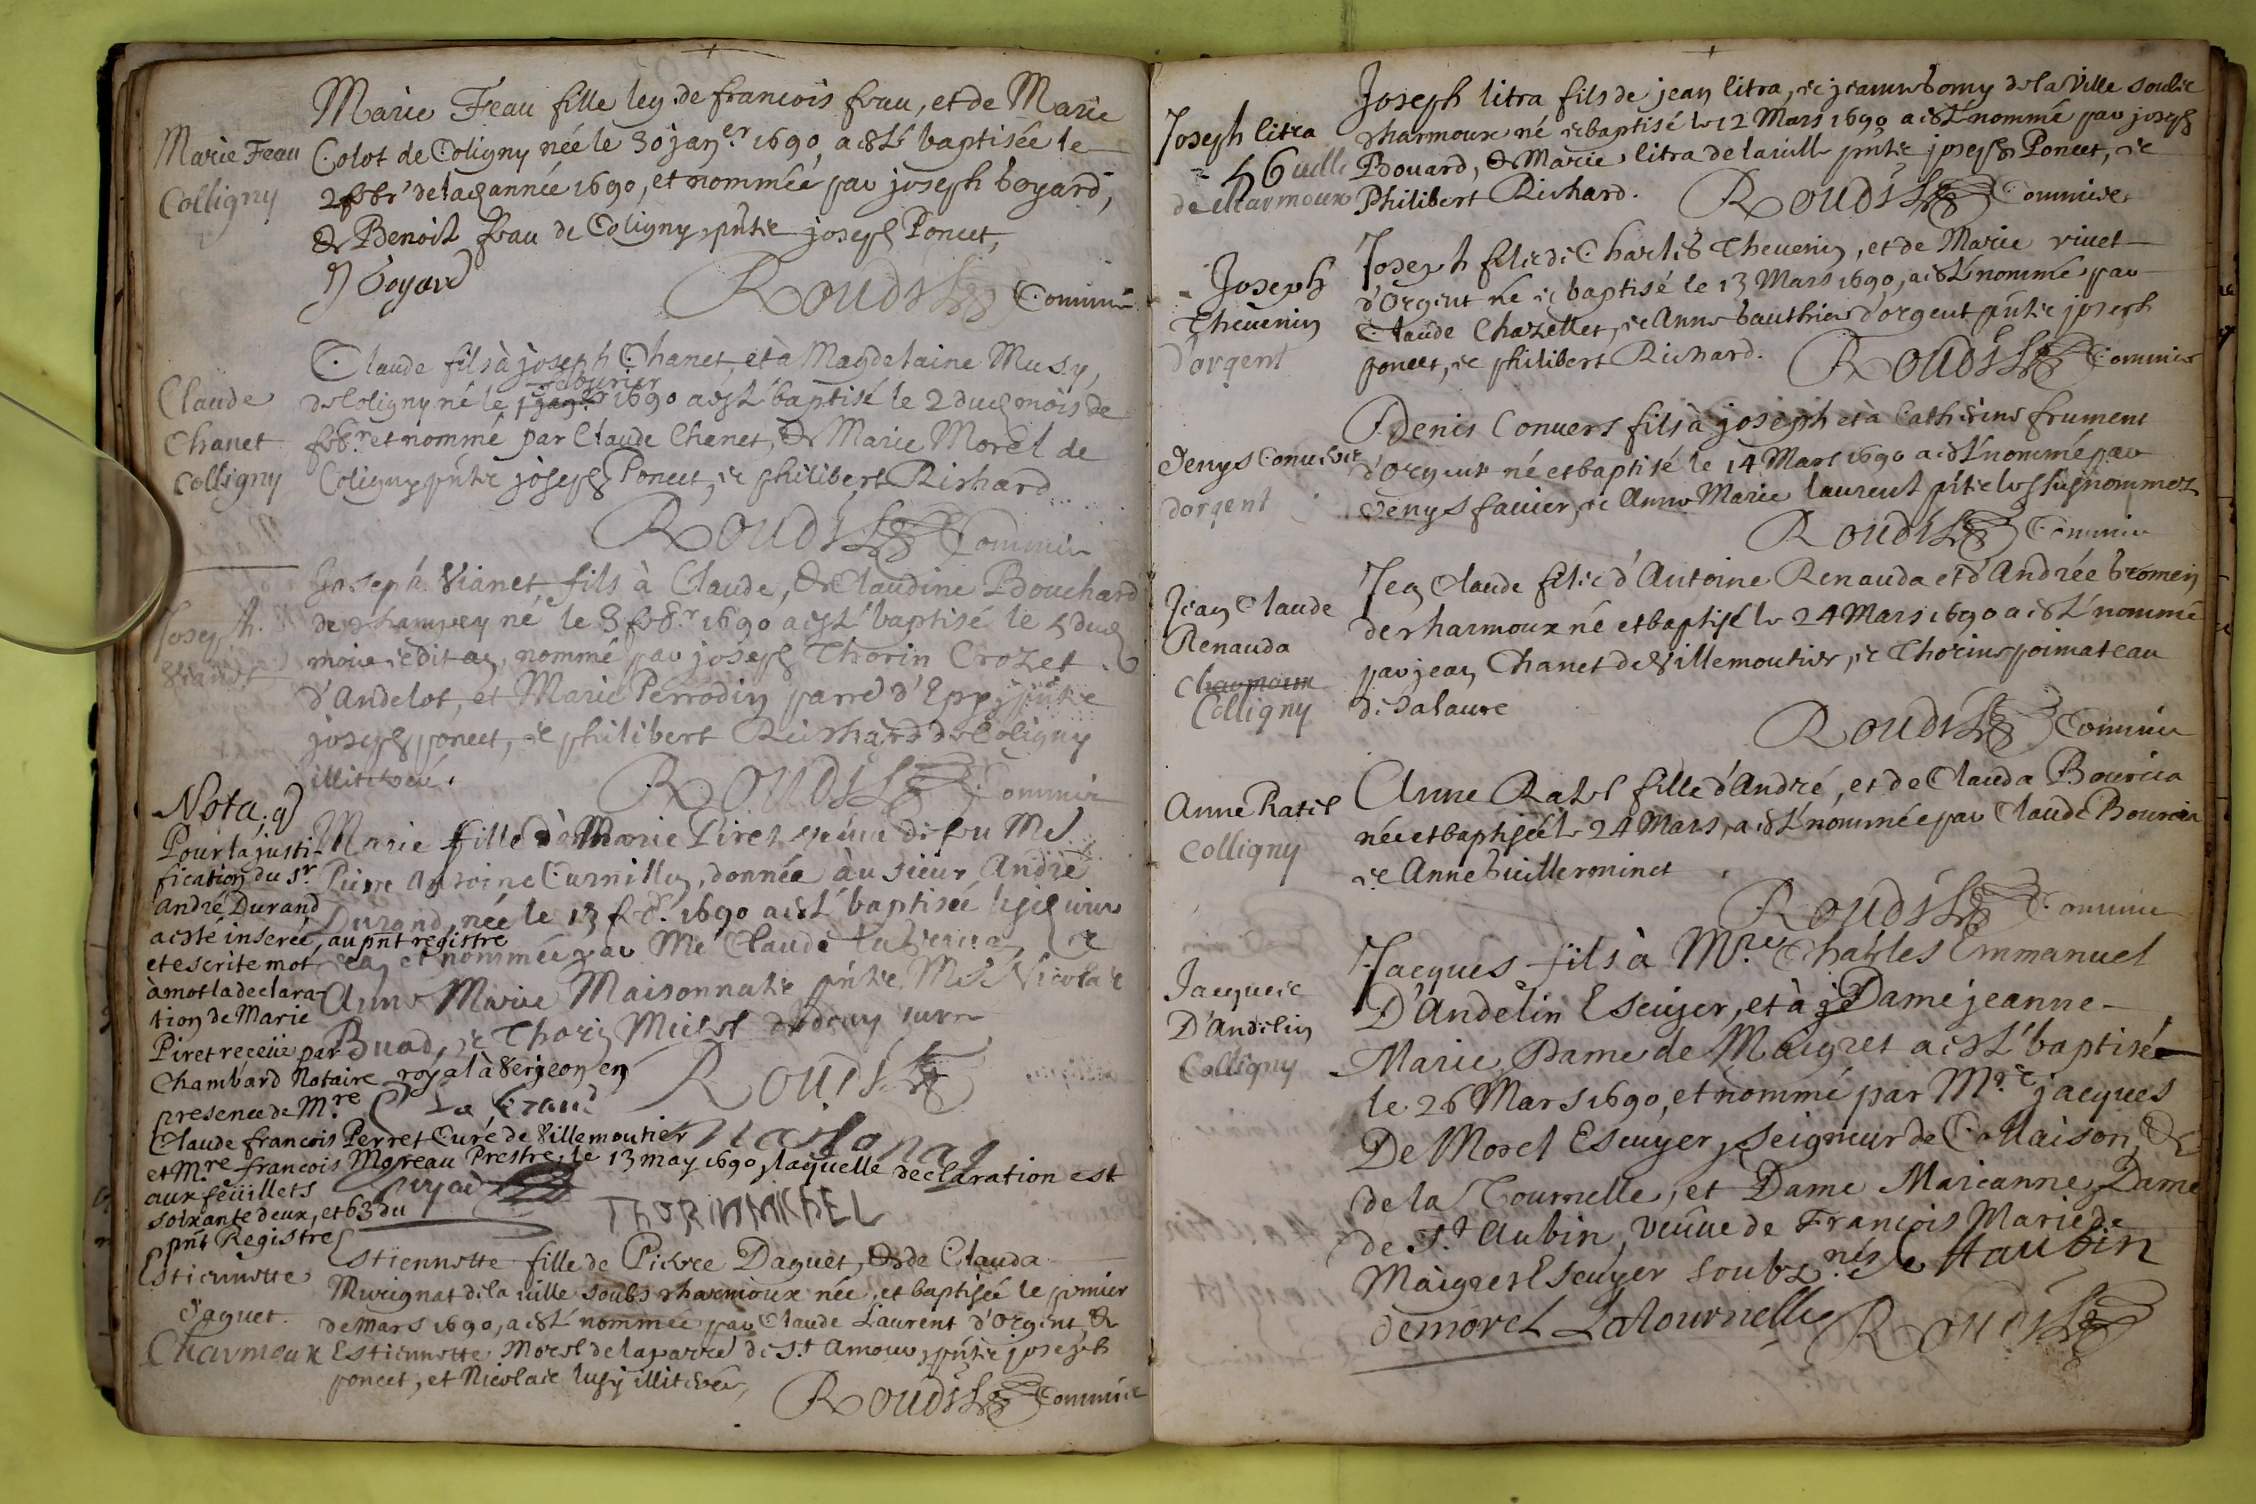 Marie Feau
Colligny
Marie Feau fille leg. de francois feau, et de Marie
Colot de Coligny née le 30 jan.er 1690, a esté baptisée le
2 febr de lad année 1690, et nommée par joseph boyard,
& Benoit feau de Coligny, pnts joseph Poncet,
J Boyard
Roudil Commis
Claude
Chanet
Colligny
Claude fils à joseph Chanet, et à Magdelaine Musy,
de Coligny né le 1 feburier 1690 a esté baptisé le 2 dud mois de
feb.r et nommé par Claude Chanet, & Marie Morel de
Coligny pnts joseph Poncet, et philibert Richard
Roudil Commis
Joseph
Vianet
Joseph Vianet, fils à Claude, & Claudine Bouchard
de né le 3 feb.r 1690 a esté baptisé le 5 dud
mois et dit an, nommé par joseph Thorin Crozet
d'Andelot, et Marie Perrodin parre d'Eppy pnts
joseph poncet, et philibert Richard de Coligny
Roudil Commis
Nota. q
Pour la justi-
fication du sr
andré Durand
a esté inserée, au pnt registre
et escrite mot
à mot la declara-
tion de Marie
Piret receüe par
Chambard Notaire royal à Verjeon en
presence de M.re
Claude francois Perret Curé de Villemoutier
et M.re francois Moreau Prestre, le 13 may 1690, laquelle declaration est
aux feüillets
soixante deux, et 63 du
pnt Registre
Marie fille à Marie Piret veuue de feu M.e
Pierre Antoine Curnillon, donnée au sieur André
Durand, née le 13 feb. 1690 a esté baptisée
et nommée par Me Claude &
Anne Marie Maisonnate pnts Me Nicolas
Buad, et Thorin Michel
Roudil
THORIN MICHEL
Estiennette
Daguet
Charmoux
Estiennette fille de Pierre Daguet, & de Clauda
Murignat de la uille soubs charmoux née, et baptisée le pmier
de mars 1690, a esté nommée par Claude Laurent d'Orgent, &
Estiennette Morel de la parre de S.t Amour, pnts joseph
poncet, et Nicolas lusy illiterés,
Roudil Commis
Joseph litra
Uille
de charmoux
Joseph litra fils de jean litra, et jeanne bomy de la Ville soubs
charmoux né et baptisé le 12 Mars 1690 a esté nommé par joseph
Bouard, & Marie litra de la uille pnts joseph Poncet, et
Philibert Richard.
Roudil Commis
Joseph
Theuenin
d'orgent
Joseph fils de Charles Theuenin, et de Marie riuet
d'Orgent né et baptisé le 13 Mars 1690, a esté nommé par
Claude Chazellet, et Anne bauthier d'orgent pnts joseph
poncet, et philibert Richard.
Roudil Commis
Denys Conuers
dorgent
Denis Conuers fils à joseph et à Catherine frument
d'Orgent né et baptisé le 14 Mars 1690 a esté nommé par
Denys fauier, et Anne Marie laurent pnts les susnommez
Roudil Commis
Jean Claude
Renauda
Charmoux
Colligny
Jean Claude fils d'Antoine Renauda et d'Andrée bromen
de charmoux né et baptisé le 24 Mars 1690 a esté nommé
par jean Chanet de Villemoutier, et Thorine poimateau
de salaure
Roudil Commis
Anne Ratel
Colligny
Anne Ratel fille d'André, et de Clauda Bourcia
née et baptisée le 24 Mars, a esté nommée par Claude Bourcia
et Anne Vuillerminet
Roudil Commis
Jacques
D'Andelin
Colligny
Jacques fils à M.re Charles Emmanuel
D'Andelin Escuyer, et à Dame jeanne
Marie, Dame de Maigret a esté baptisé
le 26 Mars 1690, et nommé par M.re jacques
De Morel Escuyer, Seigneur de Collaison, &
de la Tournelle, et Dame Marianne, Dame
de S.t Aubin, veüue de François Marie de
Maigret Escuyer soubz.nés St aubin
demorel Latournelle Roudil